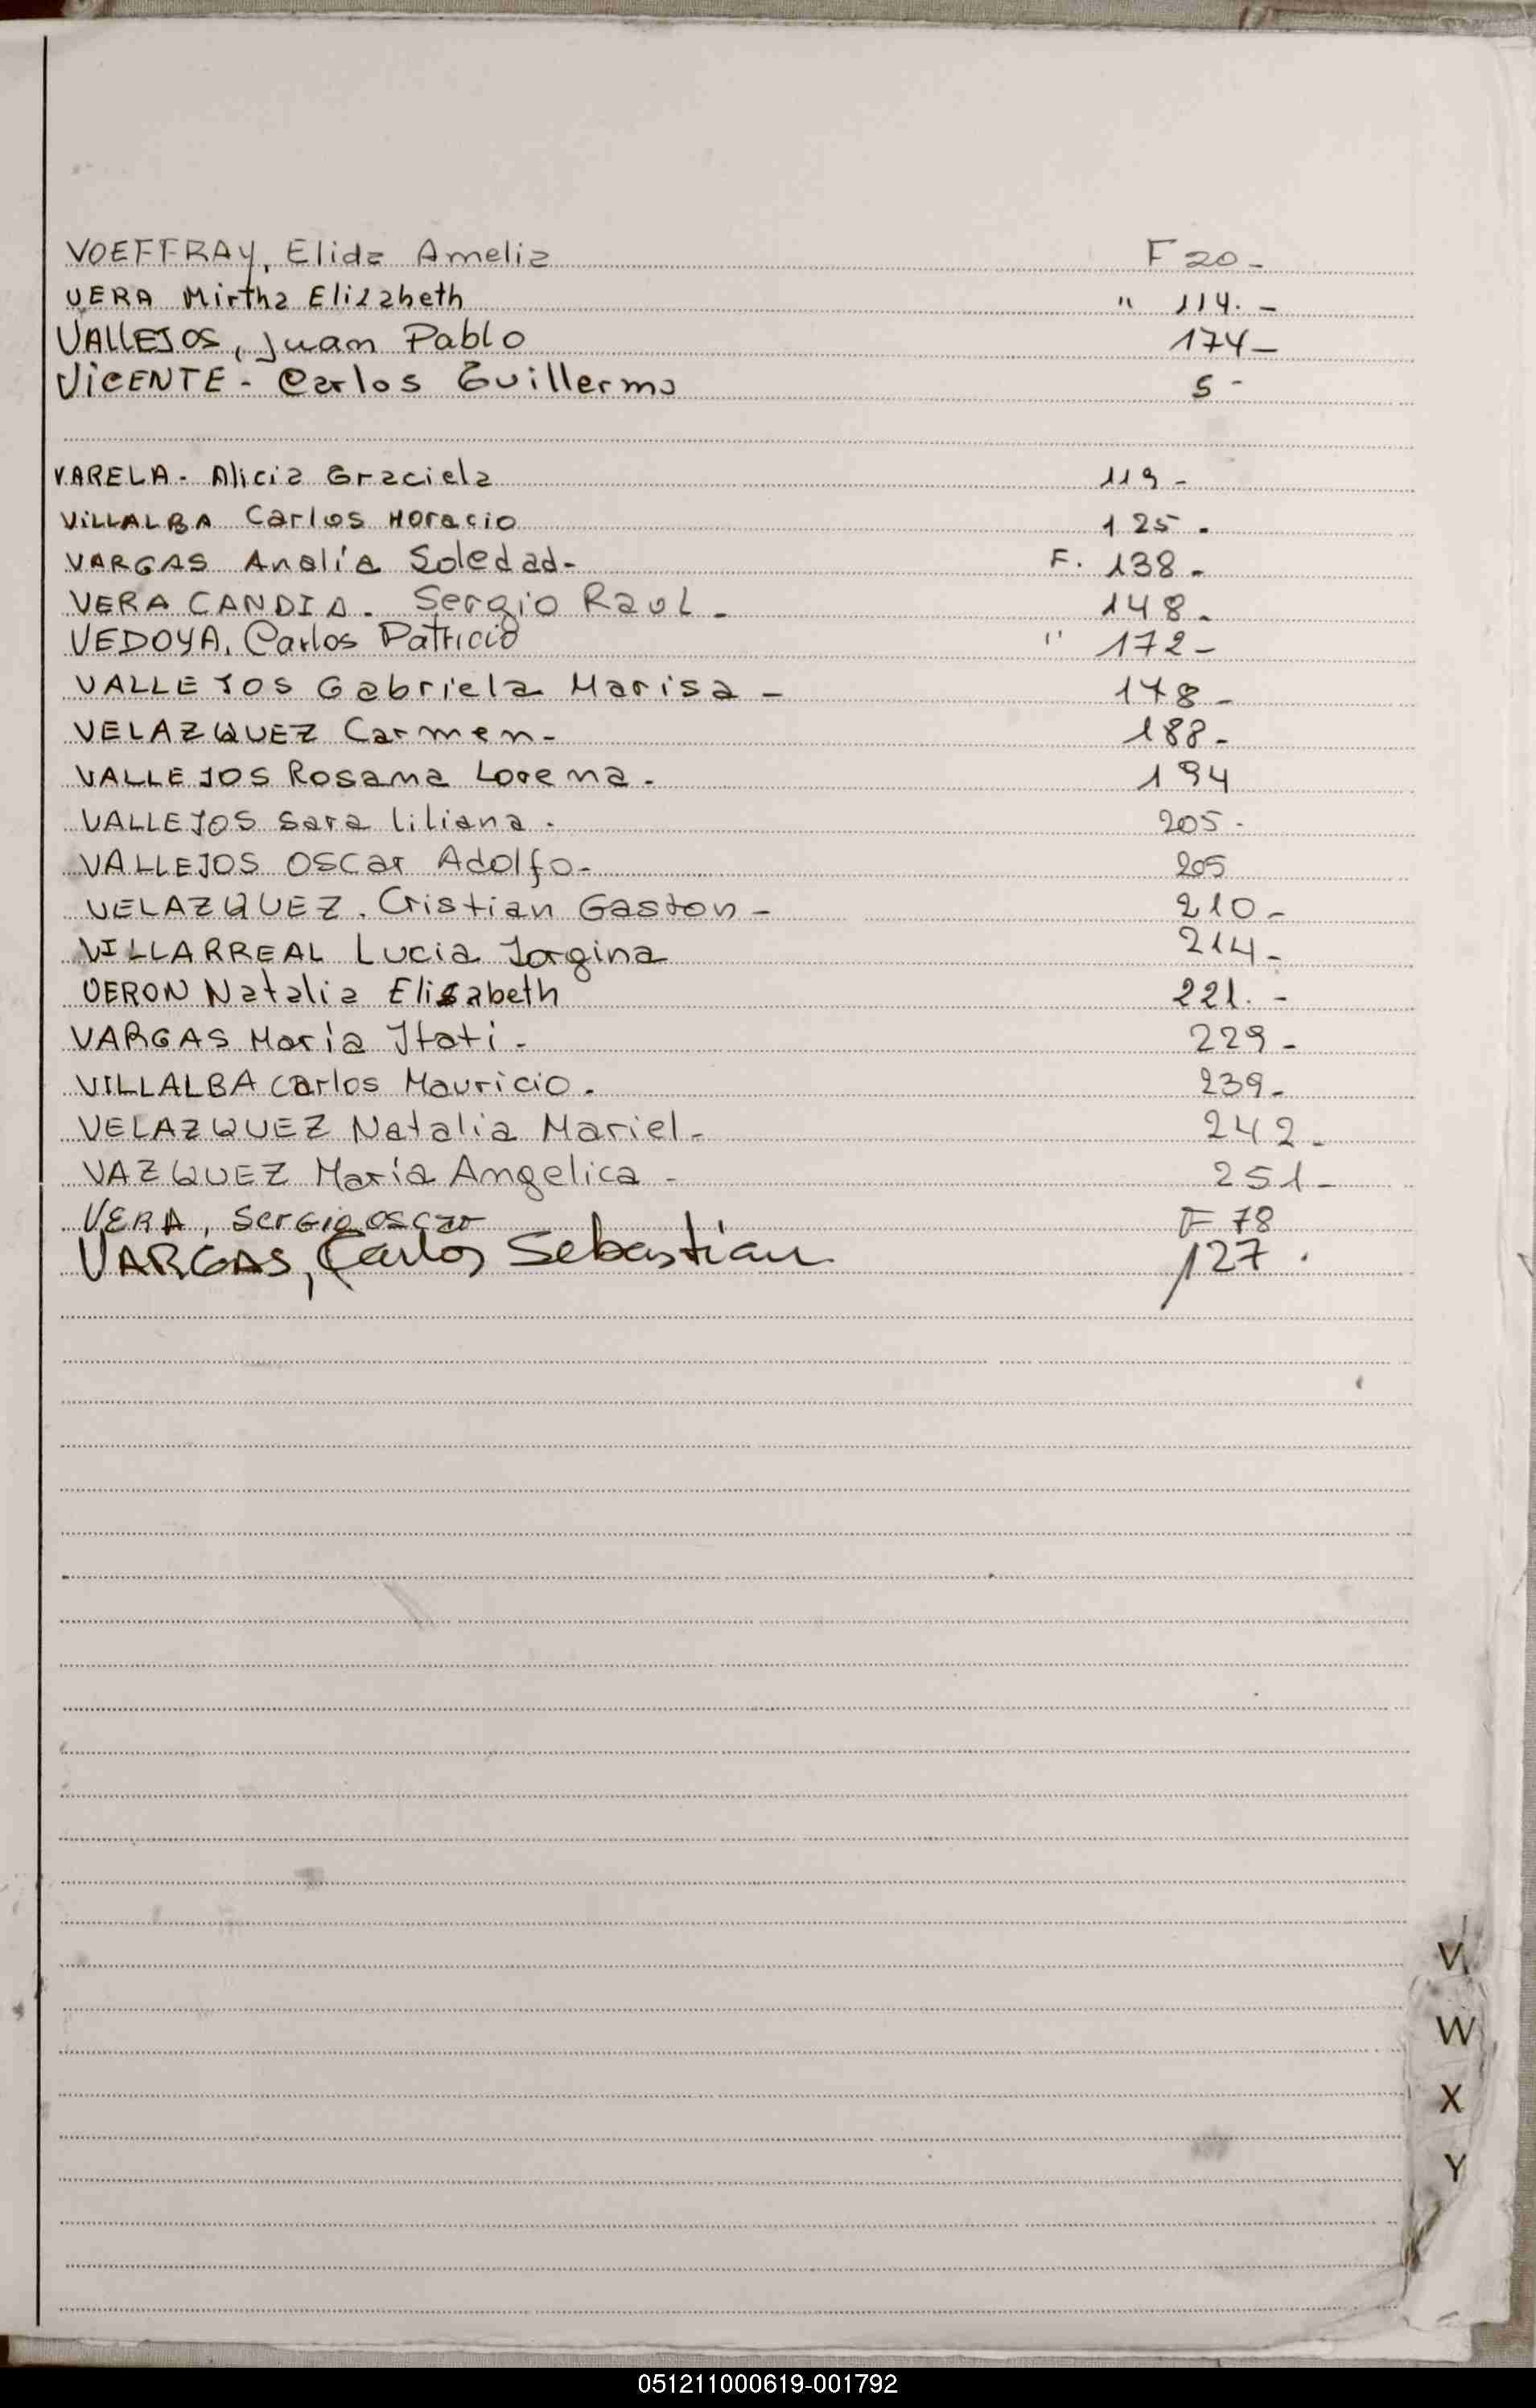 VOEFFRAY, Elida Amelia F 20-
VERA Mirtha Elizabeth " 114.-
VALLEJOS, Juan Pablo 174-
ViCENTE - Carlos Guillermo 5-
VARELA. Alicia Graciela 119-
ViLLALBA Carlos Horacio 125.
VARGAS Analía Soledad- F. 138-
VERA CANDIA. Sergio Raul- 148-
VEDOYA, Carlos Patricio " 172-
VALLEJOS Gabriela Marisa- 178-
VELAZQUEZ Carmen- 188-
VALLEJOS Rosana Lorena. 194
VALLEJOS Sara liliana. 205-
VALLEJOS Oscar Adolfo- 205
VELAZQUEZ. Cristian Gaston- 210-
VILLARREAL Lucia Jorgina 214-
VERON Natalia Elisabeth 221.-
VARGAS María Itati- 229-
VILLALBA Carlos Mauricio. 239-
VELAZQUEZ Natalia Mariel- 242-
VAZQUEZ María Angelica- 251-
VERA, Sergio oscar F 78
VARGAS, Carlos Sebastian 127.
V
W
X
Y
051211000619-001792